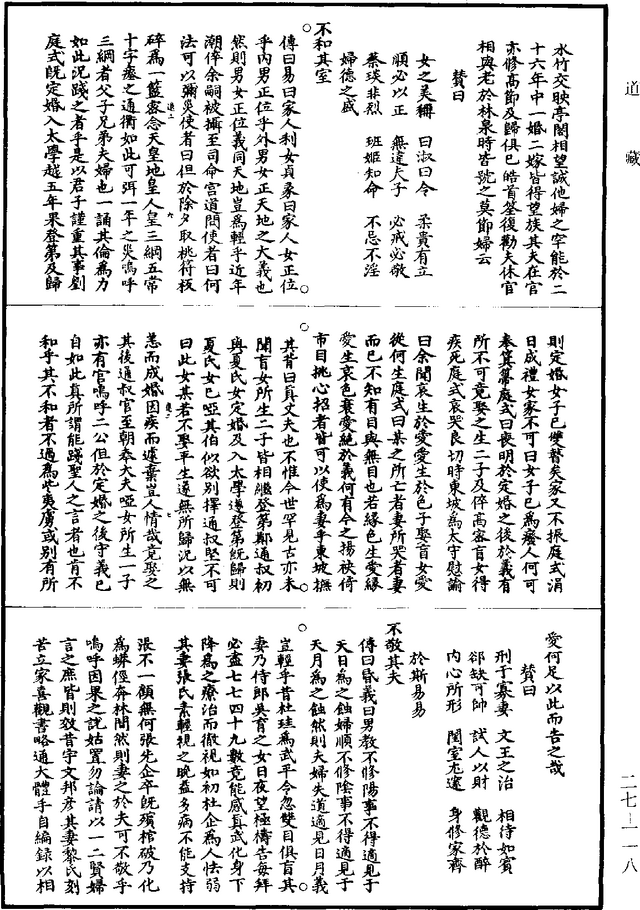 道藏
水竹交映亭閣相望誠他婦之罕能於二
十六年中一婚二嫁皆得望族其夫在官
亦修高節及歸俱已皓首荃後勸夫休官
相與老於林泉時皆號之莫節婦云
贊曰
女之美稱 曰淑曰令 柔貴有立
順必以正 無違夫子 必戒必敬
蔡琰非烈 班姬知命 不忌不淫
婦德之盛
不和其室
傳曰易曰家人利女貞彖曰家人女正位
乎內男正位乎外男女正天地之大義也
然則男女正位義同天地豈為輕乎近年
潮倅余嗣被攝至司命宮道問使者曰何
法可以彌災使者曰但於除夕取桃符板
碎為一籃密念天皇地皇人皇三綱五常
十字瘞之通衢如此可弭一年之災嗚呼
三綱者父子兄弟夫婦也一誦其倫為力
如此況踐之者乎是以君子謹重其事劉
庭式既定婚入太學越五年果登第及歸
則定婚女子已雙瞽矣家又不振庭式涓
日成禮女家不可曰女子已為癈人何可
奉箕箒庭式曰喪明於定婚之後於義有
所不可竟娶之生二子及倅高密盲女得
疾死庭式哀哭良切時東坡為太守慰諭
曰余聞哀生於愛愛生於色子娶盲女愛
從何生庭式曰某之所亡者妻所哭者妻
而已不知有目與無目也若緣色生愛緣
愛生哀色衰愛絕於義何有今之揚袂倚
市目挑心招者皆可以使為妻乎東坡撫
其背曰真丈夫也不惟今世罕見古亦未
聞盲女所生二子皆相繼登第鄭通叔初
與夏氏女定婚及入太學遂登第既歸則
夏氏女已啞其伯似欲別擇通叔堅不可
曰此女某若不娶平生遂無所歸況以無
恙而成婚因疾而遽棄豈人情哉竟娶之
其後通叔官至朝奉大夫啞女所生一子
亦有官嗚呼二公但於定婚之後守義已
自如此真所謂能踐聖人之言者也肯不
和乎其不和者不過為些夷虜或別有所
愛何足以此而告之哉
贊曰
刑于寡妻 文王之治 相待如賓
郤缺可師 試人以財 觀德於醉
內心所形 閨室尤邃 身修家齊
於斯易易
不敬其夫
傳曰昏義曰男教不修陽事不得適見于
天日為之蝕婦順不修陰事不得適見于
天月為之蝕然則夫婦失道適見日月義
豈輕乎昔杜珪為武平令忽雙目俱盲其
妻乃侍郎吳育之女日夜望極禱告每拜
必盡七七四十九數竟能感真武化身下
降為之療治而徹視如初杜企為人怯弱
其妻張氏素輕視之晚益多病不能支持
張不一顧無何張先企卒既殯棺破乃化
為蟒徑奔林間然則妻之於夫可不敬乎
嗚呼因果之說姑置勿論請以一二賢婦
言之庶皆則效昔宇文邦彥其妻黎氏刻
苦立家喜觀書略通大體手自編錄以相
二七—一一八